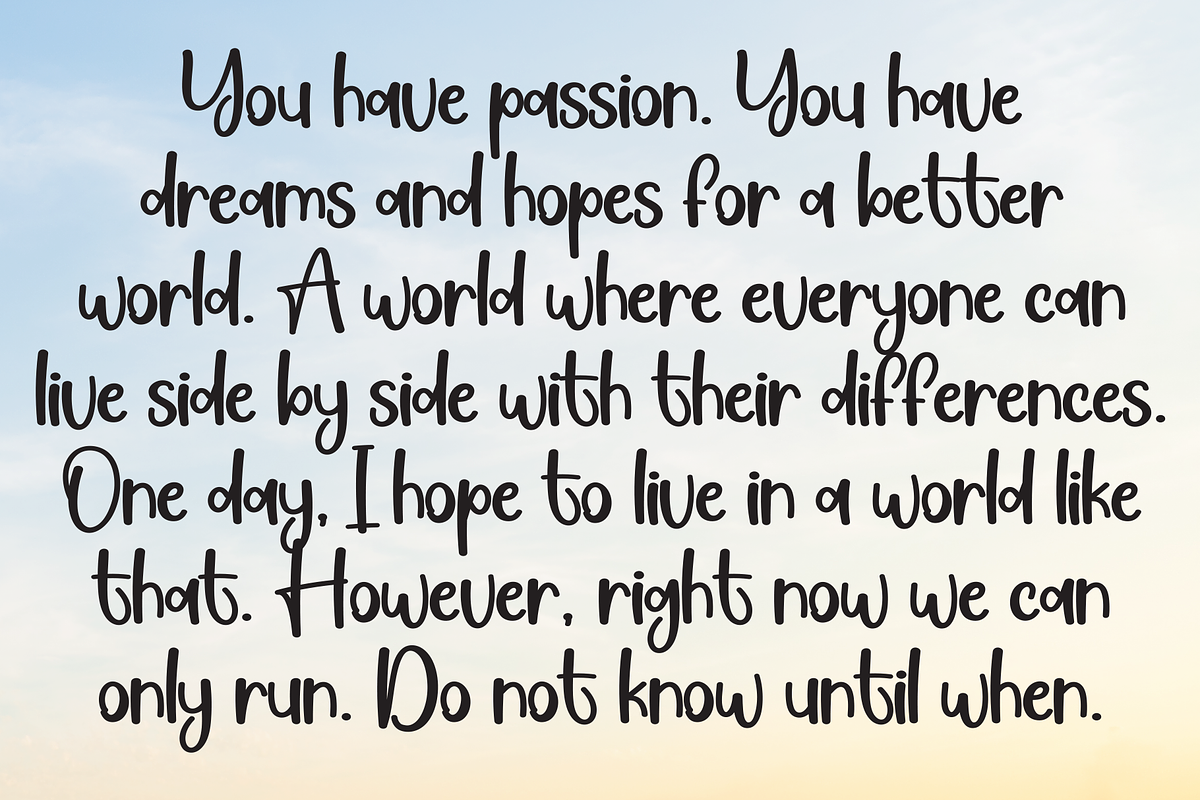 You have passion. You have
dreams and hopes for a better
world. A world where everyone can
live side by side with their differences.
One day, I hope to live in a world like
that. However, right now we can
only run. Do not know until when.